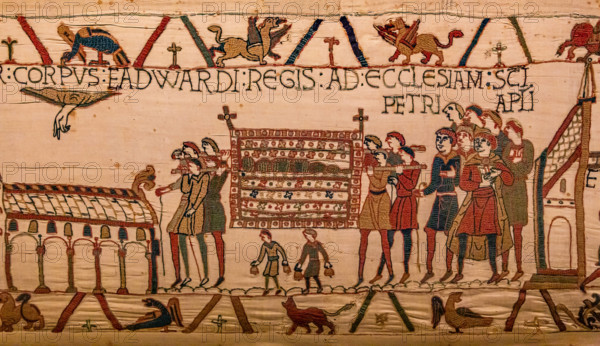 R : CORPVS : EADWARDI : REGIS : AD : ECCLESIAM : SCI
PETRI APLI
E